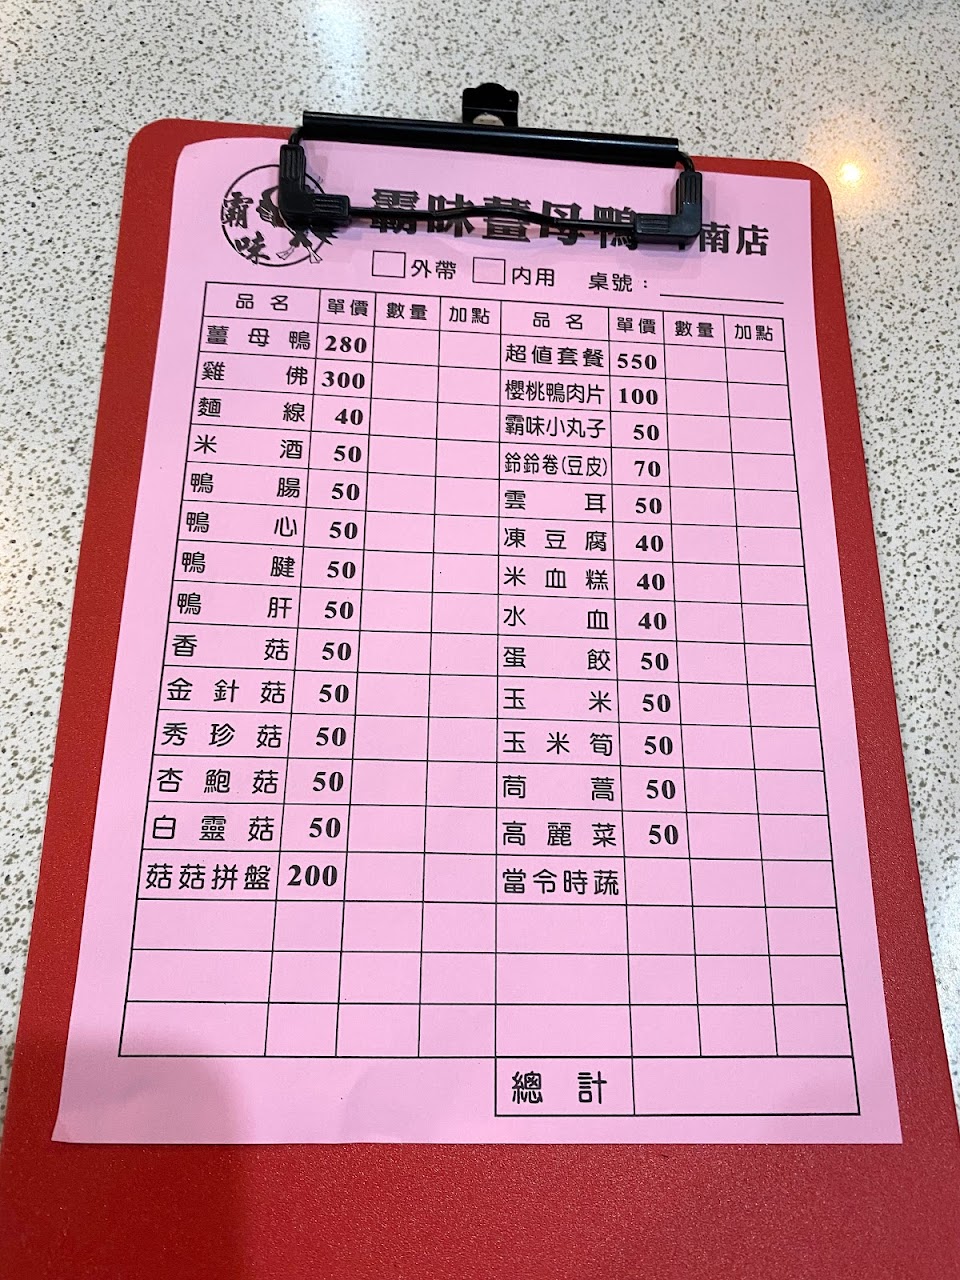 霸味
霸味薑母鴨 南店
外帶 內用 桌號：
品名 單價 數量 加點 品名 單價 數量 加點
薑母鴨 280 超值套餐 550
雞佛 300 櫻桃鴨肉片 100
麵線 40 霸味小丸子 50
米酒 50 鈴鈴卷(豆皮) 70
鴨腸 50 雲耳 50
鴨心 50 凍豆腐 40
鴨腱 50 米血糕 40
鴨肝 50 水血 40
香菇 50 蛋餃 50
金針菇 50 玉米 50
秀珍菇 50 玉米筍 50
杏鮑菇 50 茼蒿 50
白靈菇 50 高麗菜 50
菇菇拼盤 200 當令時蔬
總計